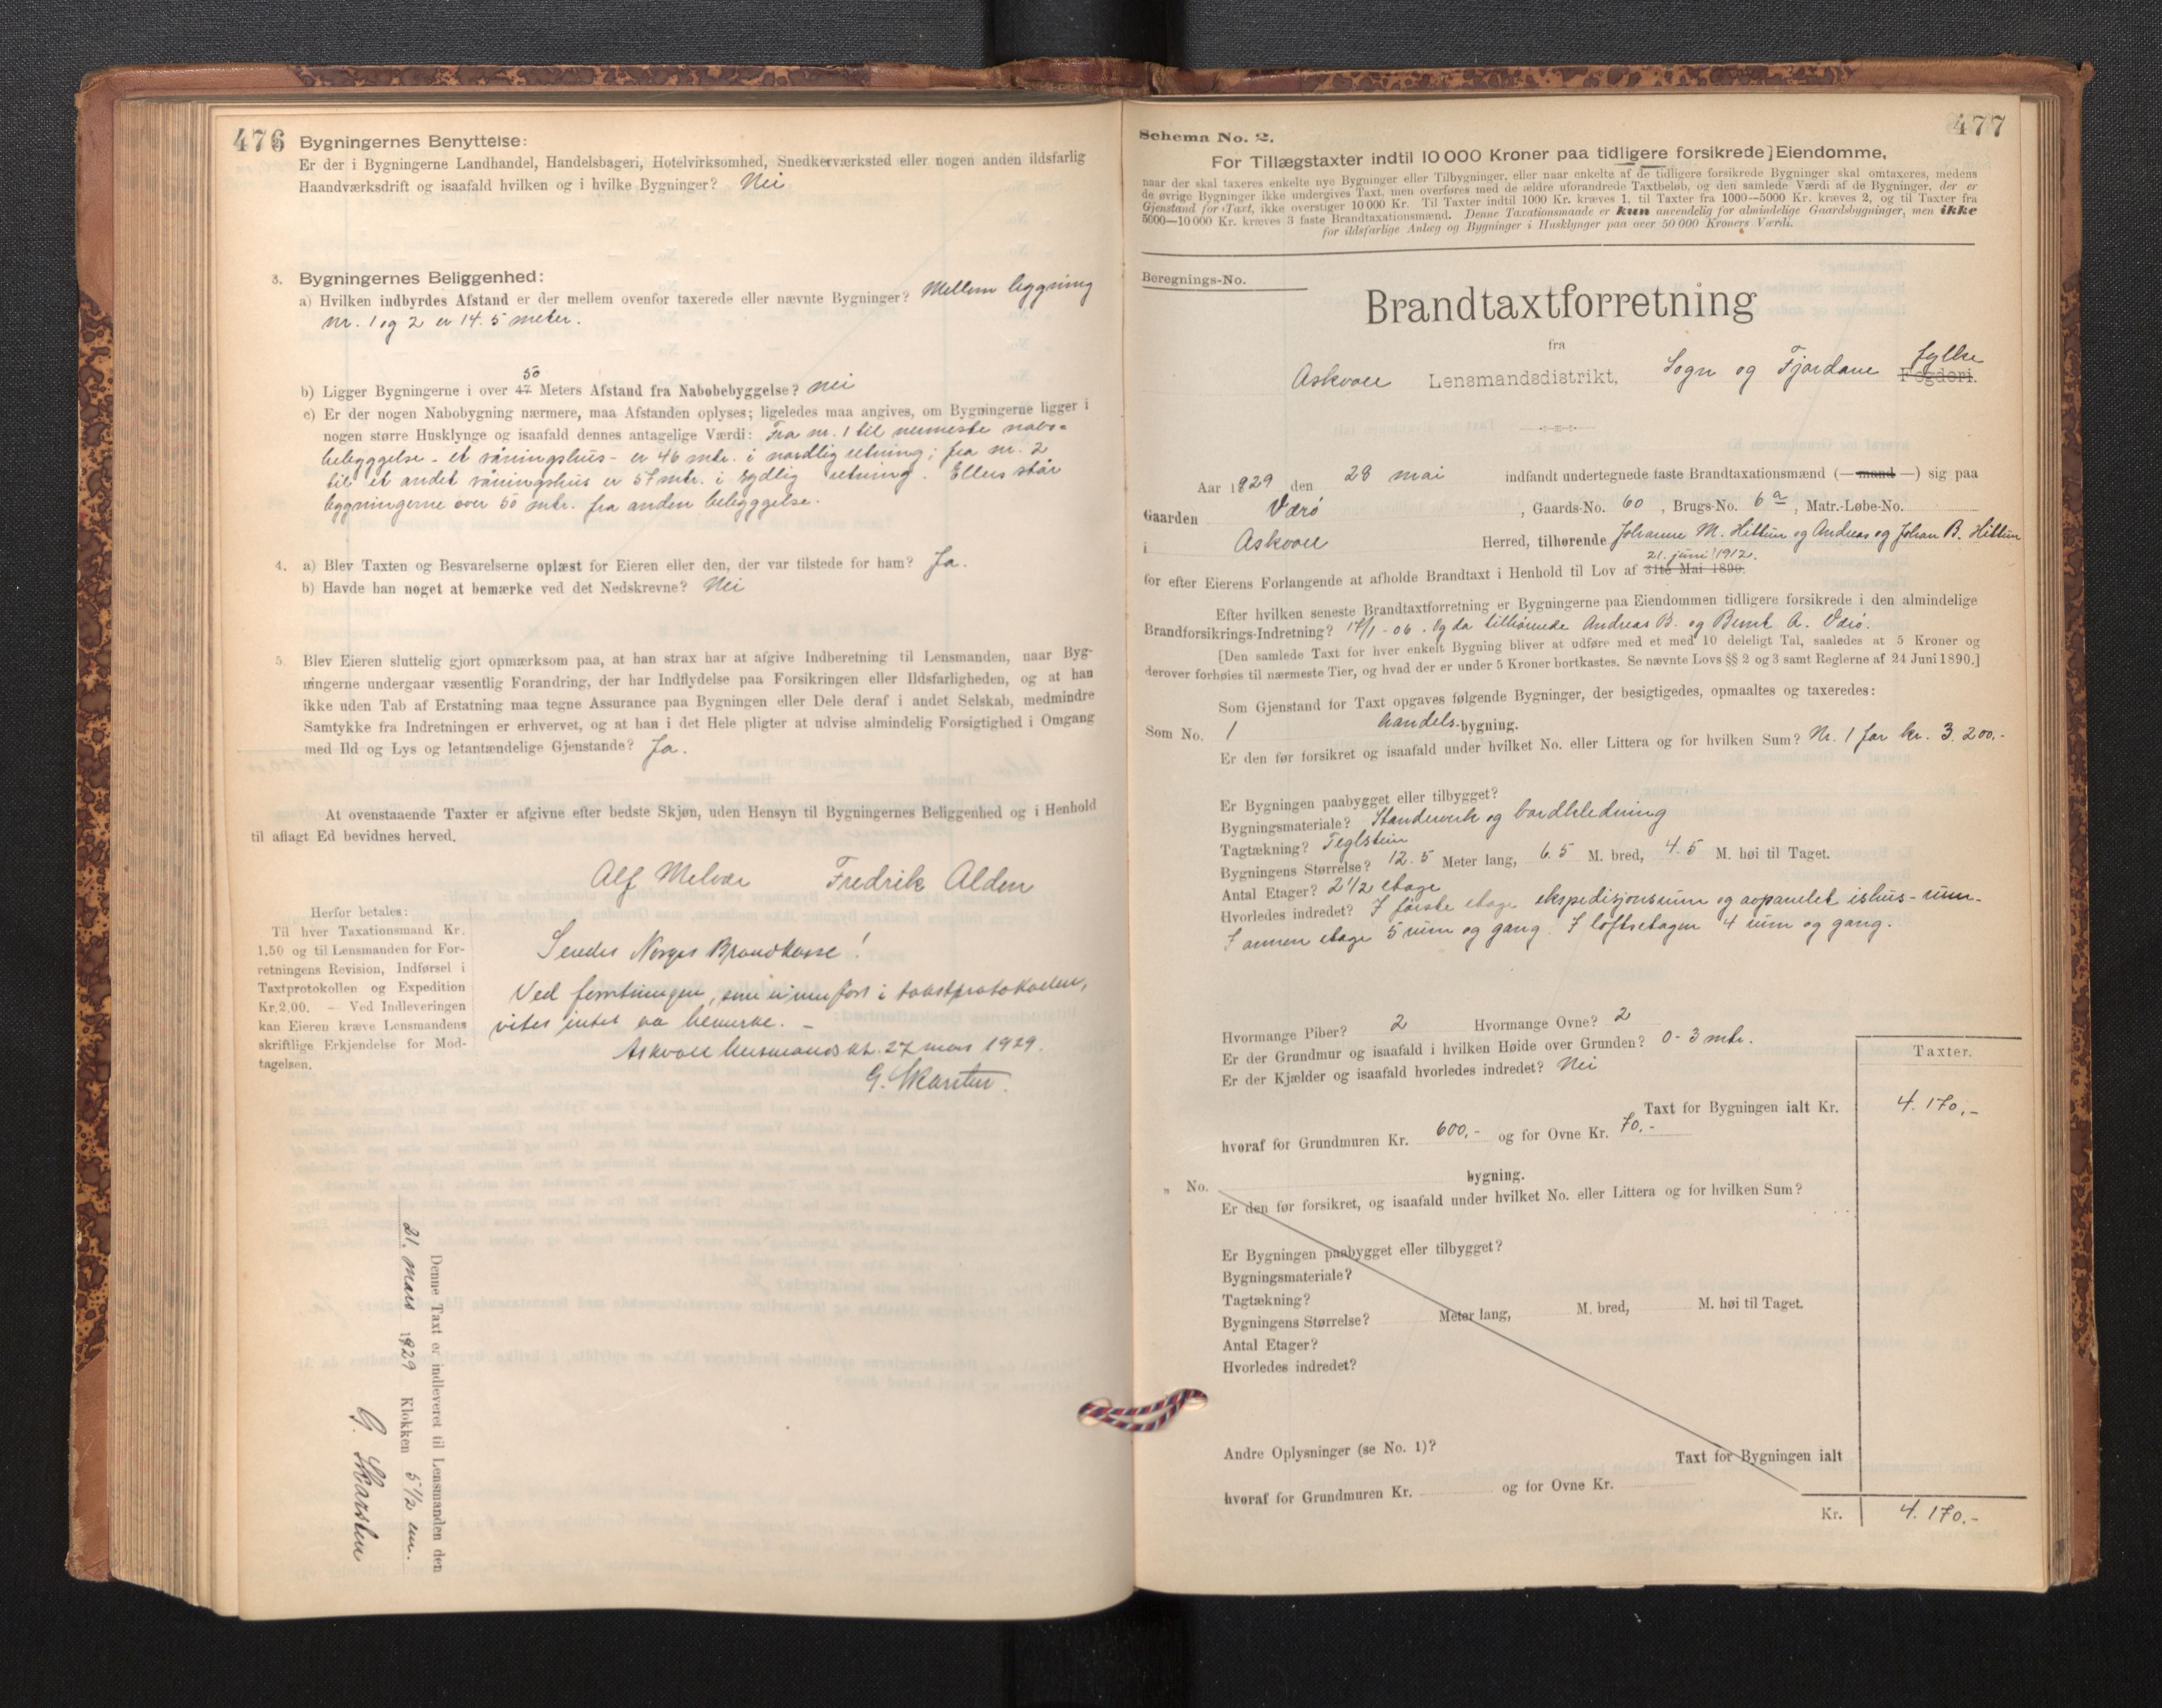 476
Bygningernes Benyttelse:
Er der i Bygningerne Landhandel, Handelsbageri, Hotelvirksomhed, Snedkerværksted eller nogen anden ildsfarlig
Haandværksdrift og isaafald hvilken og i hvilke Bygninger? Nei
3. Bygningernes Beliggenhed:
a) Hvilken indbyrdes Afstand er der mellem ovenfor taxerede eller nævnte Bygninger? Mellem bygning
nr. 1 og 2 er 14.5 meter.
50
b) Ligger Bygningerne i over 47 Meters Afstand fra Nabobebyggelse? nei
c) Er der nogen Nabobygning nærmere, maa Afstanden oplyses; ligeledes maa angives, om Bygningerne ligger i
nogen større Husklynge og isaafald dennes antagelige Værdi: Fra nr. 1 til nermeste nabo-
bebyggelse - et våningshus - er 46 mtr. i nordlig retning; fra nr. 2
til et andet våningshus er 57 mtr. i sydlig retning. Ellers står
bygningerne over 50 mtr. fra anden bebyggelse.
4. a) Blev Taxten og Besvarelserne oplæst for Eieren eller den, der var tilstede for ham? Ja.
b) Havde han noget at bemærke ved det Nedskrevne? Nei
5. Blev Eieren sluttelig gjort opmærksom paa, at han strax har at afgive Indberetning til Lensmanden, naar Byg-
ningerne undergaar væsentlig Forandring, der har Indflydelse paa Forsikringen eller Ildsfarligheden, og at han
ikke uden Tab af Erstatning maa tegne Assurance paa Bygningen eller Dele deraf i andet Selskab, medmindre
Samtykke fra Indretningen er erhvervet, og at han i det Hele pligter at udvise almindelig Forsigtighed i Omgang
med Ild og Lys og letantændelige Gjenstande? Ja.
At ovenstaaende Taxter er afgivne efter bedste Skjøn, uden Hensyn til Bygningernes Beliggenhed og i Henhold
til aflagt Ed bevidnes herved.
Alf Melvær Fredrik Alden
Herfor betales:
Til hver Taxationsmand Kr.
1,50 og til Lensmanden for For-
retningens Revision, Indførsel i
Taxtprotokollen og Expedition
Kr. 2,00. — Ved Indleveringen
kan Eieren kræve Lensmandens
skriftlige Erkjendelse for Mod-
tagelsen.
Sendes Norges Brandkasse!
Ved forretningen, som er innført i takstprotokollen,
vites intet aa bemerke. —
Askvoll lensmandskt. 27 mars 1929.
G. Skarsten.
Denne Taxt er indleveret til Lensmanden den
21. mars 1929 Klokken 5 1/2 em.
G. Skarsten
477
Schema No. 2.
For Tillægstaxter indtil 10 000 Kroner paa tidligere forsikrede Eiendomme,
naar der skal taxeres enkelte nye Bygninger eller Tilbygninger, eller naar enkelte af de tidligere forsikrede Bygninger skal omtaxeres, medens
de øvrige Bygninger ikke undergives Taxt, men overføres med de ældre uforandrede Taxtbeløb, og den samlede Værdi af de Bygninger, der er
Gjenstand for Taxt, ikke overstiger 10 000 Kr. Til Taxter indtil 1000 Kr. kræves 1, til Taxter fra 1000—5000 Kr. kræves 2, og til Taxter fra
5000—10 000 Kr. kræves 3 faste Brandtaxationsmænd. Denne Taxationsmaade er kun anvendelig for almindelige Gaardsbygninger, men ikke
for ildsfarlige Anlæg og Bygninger i Husklynger paa over 50 000 Kroners Værdi.
Beregnings-No.
Brandtaxtforretning
fra
Askvoll Lensmandsdistrikt, Sogn og Fjordane Fylke Fogderi.
Aar 1929 den 28 mai indfandt undertegnede faste Brandtaxationsmænd (— mand —) sig paa
Gaarden Værø, Gaards-No. 60, Brugs-No. 6 a, Matr.-Løbe-No.
i Askvoll Herred, tilhørende Johanne M. Hittun og Andreas og Johan B. Hittun
21. juni 1912.
for efter Eierens Forlangende at afholde Brandtaxt i Henhold til Lov af 31te Mai 1890.
Efter hvilken seneste Brandtaxtforretning er Bygningerne paa Eiendommen tidligere forsikrede i den almindelige
Brandforsikrings-Indretning? 17/1 - 06. Og da tilhørende Andreas B. og Bernt A. Værø.
[Den samlede Taxt for hver enkelt Bygning bliver at udføre med et med 10 deleligt Tal, saaledes at 5 Kroner og
derover forhøies til nærmeste Tier, og hvad der er under 5 Kroner bortkastes. Se nævnte Lovs §§ 2 og 3 samt Reglerne af 24 Juni 1890.]
Som Gjenstand for Taxt opgaves følgende Bygninger, der besigtigedes, opmaaltes og taxeredes:
Som No. 1 handels-bygning.
Er den før forsikret og isaafald under hvilket No. eller Littera og for hvilken Sum? Nr. 1 for kr. 3.200,-
Er Bygningen paabygget eller tilbygget?
Bygningsmateriale? Standerverk og bordkledning
Tagtækning? Teglstein
Bygningens Størrelse? 12.5 Meter lang, 6.5 M. bred, 4.5 M. høi til Taget.
Antal Etager? 2 1/2 etage
Hvorledes indredet? I første etage ekspedisjonsrum og avpanelet ishus-rum.
I annen etage 5 rum og gang. I loftsetagen 4 rum og gang.
Hvormange Piber? 2 Hvormange Ovne? 2
Er der Grundmur og isaafald i hvilken Høide over Grunden? 0-3 mtr.
Er der Kjælder og isaafald hvorledes indredet? Nei
Taxter.
Taxt for Bygningen ialt Kr. 4.170,-
hvoraf for Grundmuren Kr. 600,- og for Ovne Kr. 70,-
„ No. bygning.
Er den før forsikret, og isaafald under hvilket No. eller Littera og for hvilken Sum?
Er Bygningen paabygget eller tilbygget?
Bygningsmateriale?
Tagtækning?
Bygningens Størrelse? Meter lang, M. bred, M. høi til Taget.
Antal Etager?
Hvorledes indredet?
Andre Oplysninger (se No. 1)? Taxt for Bygningen ialt
hvoraf for Grundmuren Kr. og for Ovne Kr.
Kr. 4.170,-